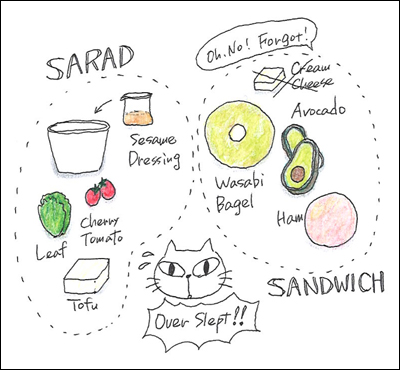 SARAD
Sesame
Dressing
Leaf
Cherry
Tomato
Tofu
Oh. No! Forgot!
Cream
Cheese
Avocado
Wasabi
Bagel
Ham
SANDWICH
Over Slept!!